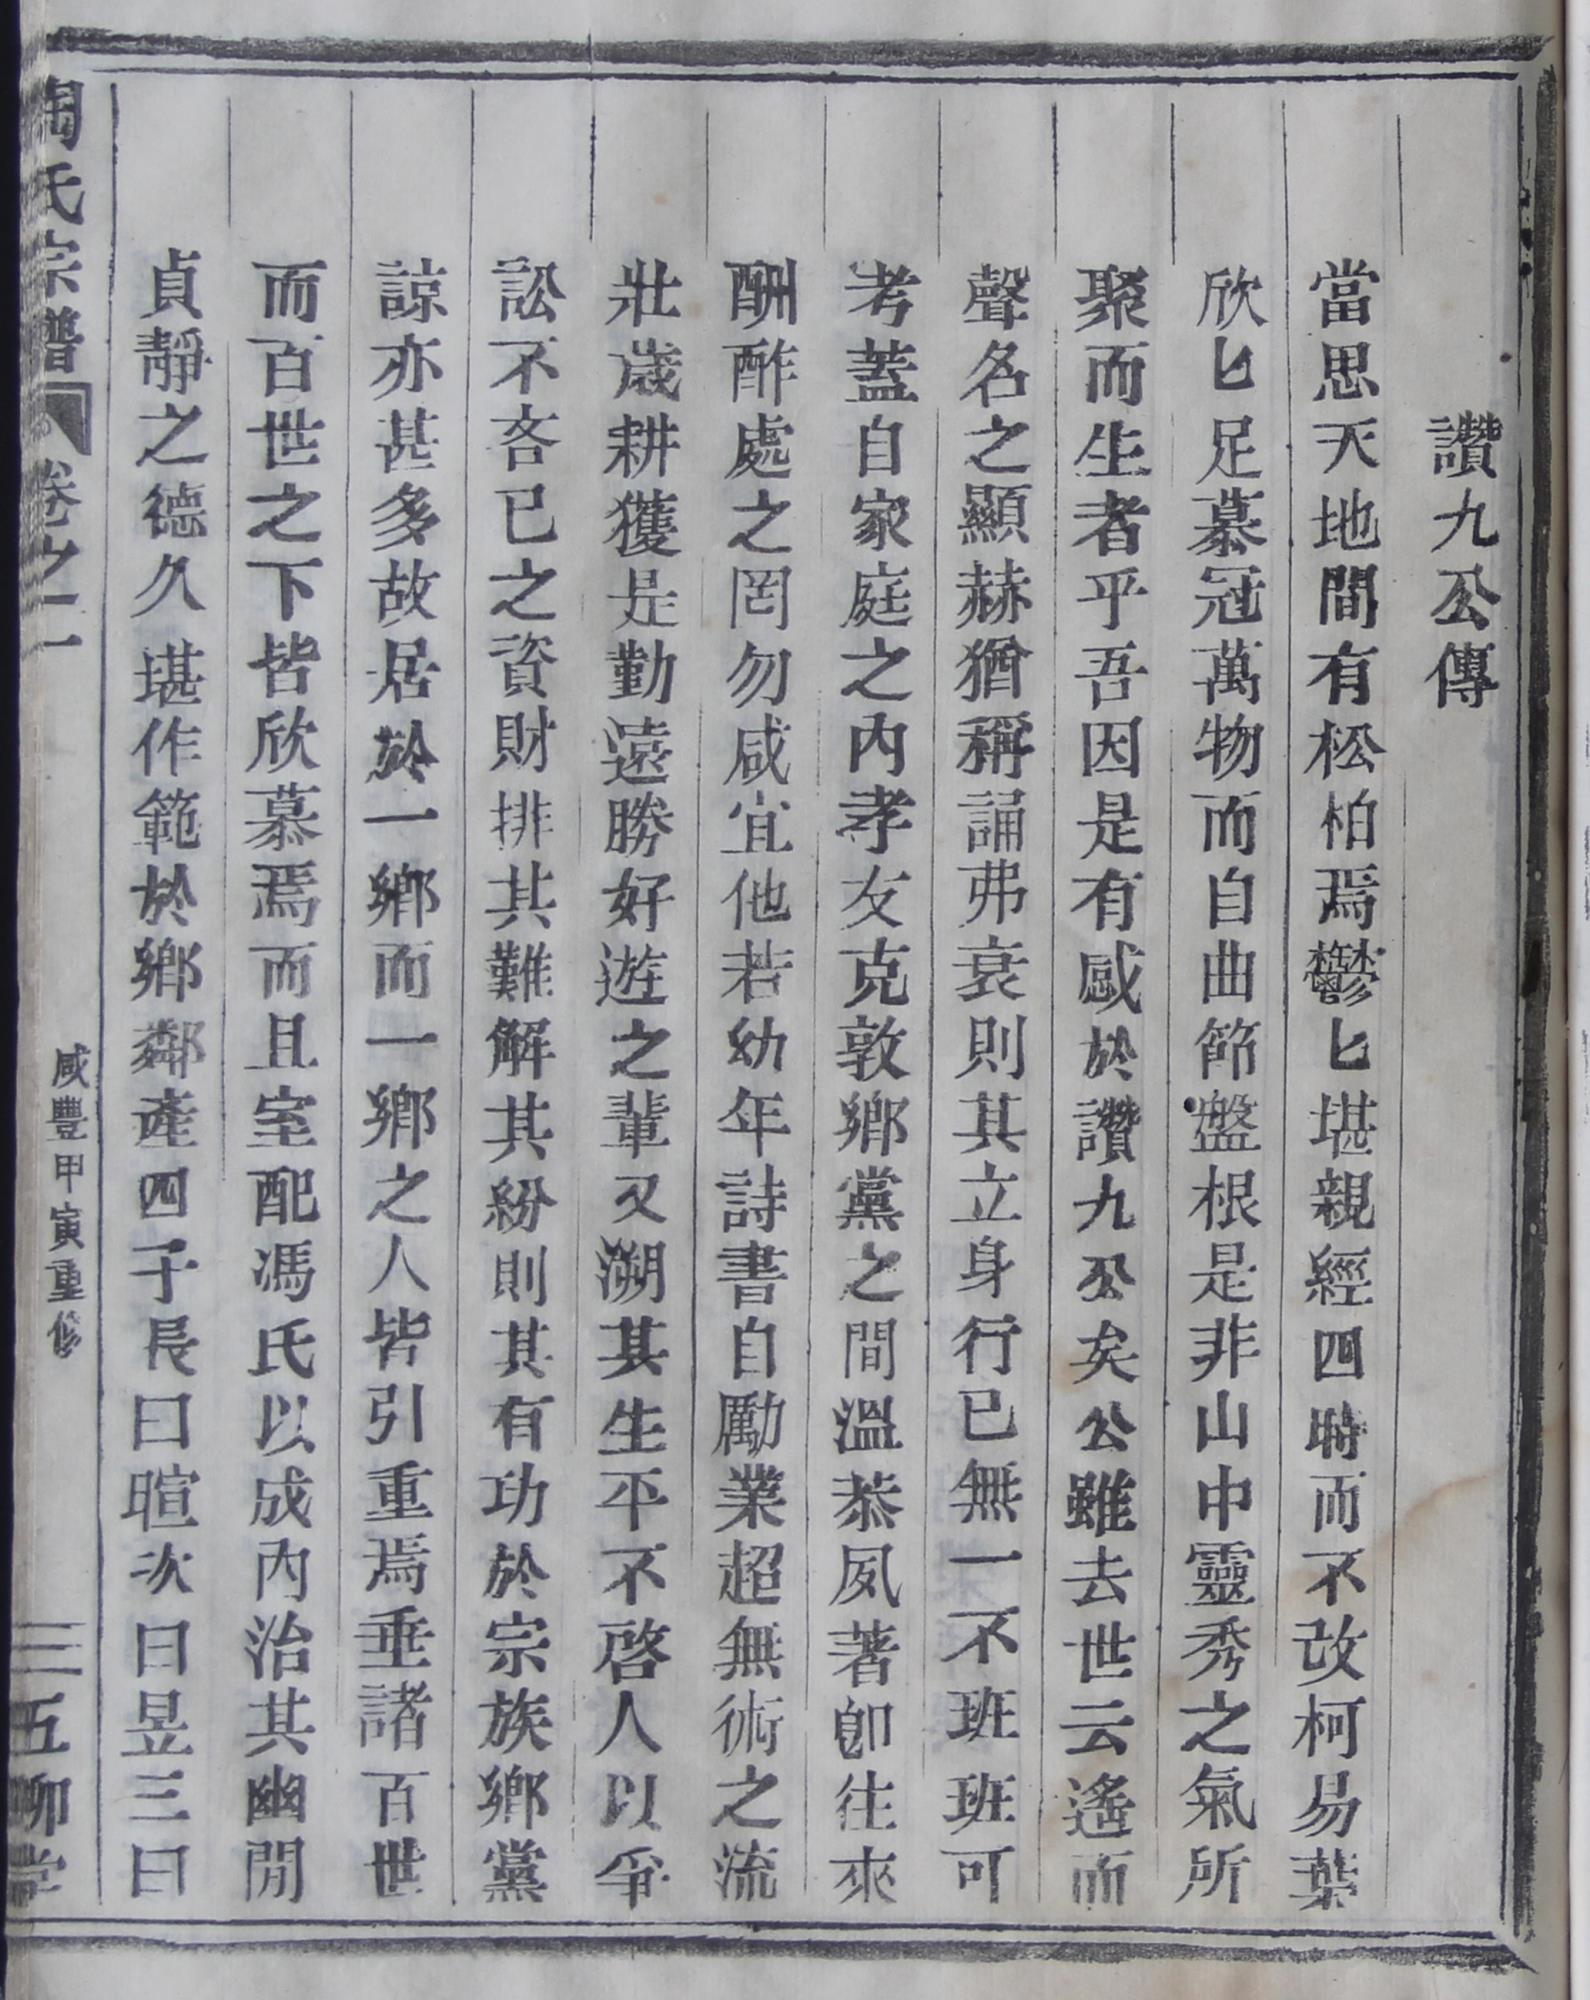 讚九公傳
當思天地間有松柏焉鬱匕堪親經四時而不改柯易葉
欣匕足慕冠萬物而自曲節盤根是非山中靈秀之氣所
聚而生者乎吾因是有感於讚九公矣公雖去世云遙而
聲名之顯赫猶稱誦弗衰則其立身行已無一不班班可
考蓋自家庭之內孝友克敦鄉黨之間溫恭夙著卽往來
酬酢處之罔勿咸宜他若幼年詩書自勵業超無術之流
壯歲耕獲是勤遠勝好遊之輩又溯其生平不啓人以爭
訟不吝已之資財排其難解其紛則其有功於宗族鄉黨
諒亦甚多故居於一鄉而一鄉之人皆引重焉垂諸百世
而百世之下皆欣慕焉而且室配馮氏以成內治其幽閒
貞靜之德久堪作範於鄉鄰產四子長曰暄次曰昱三曰
陶氏宗譜 卷之一 咸豐甲寅重修 三 五柳堂